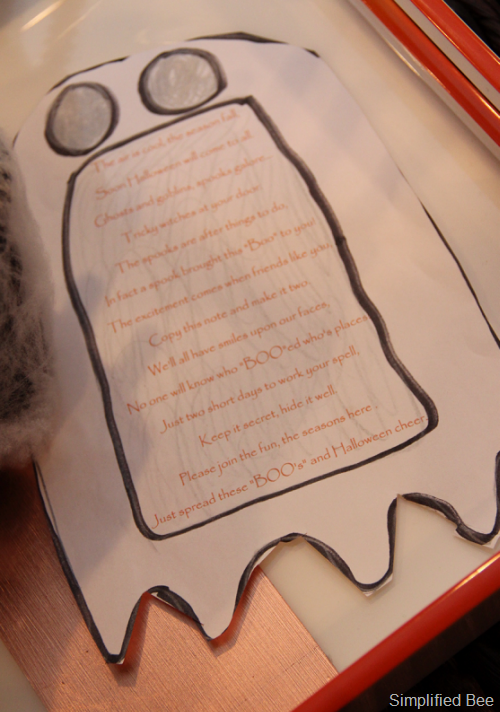 The air is cool, the season fall,
Soon Halloween will come to all.
Ghosts and goblins, spooks galore...
Tricky witches at your door.
The spooks are after things to do,
In fact a spook brought this "Boo" to you!
The excitement comes when friends like you,
Copy this note and make it two.
We'll all have smiles upon our faces,
No one will know who "BOO"ed who's places.
Just two short days to work your spell,
Keep it secret, hide it well.
Please join the fun, the seasons here.
Just spread these "BOO's" and Halloween cheer
Simplified Bee